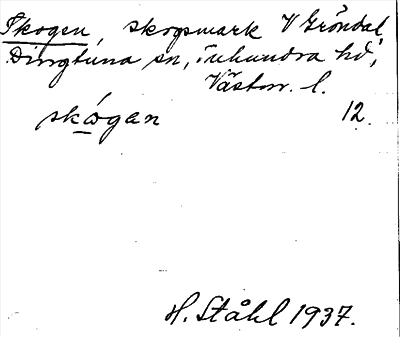 Skogen, skogsmark V Gröndal,
Dingtuna sn, Tuhundra hd,
Västm. l.
skógan 12.
H. Ståhl 1937.